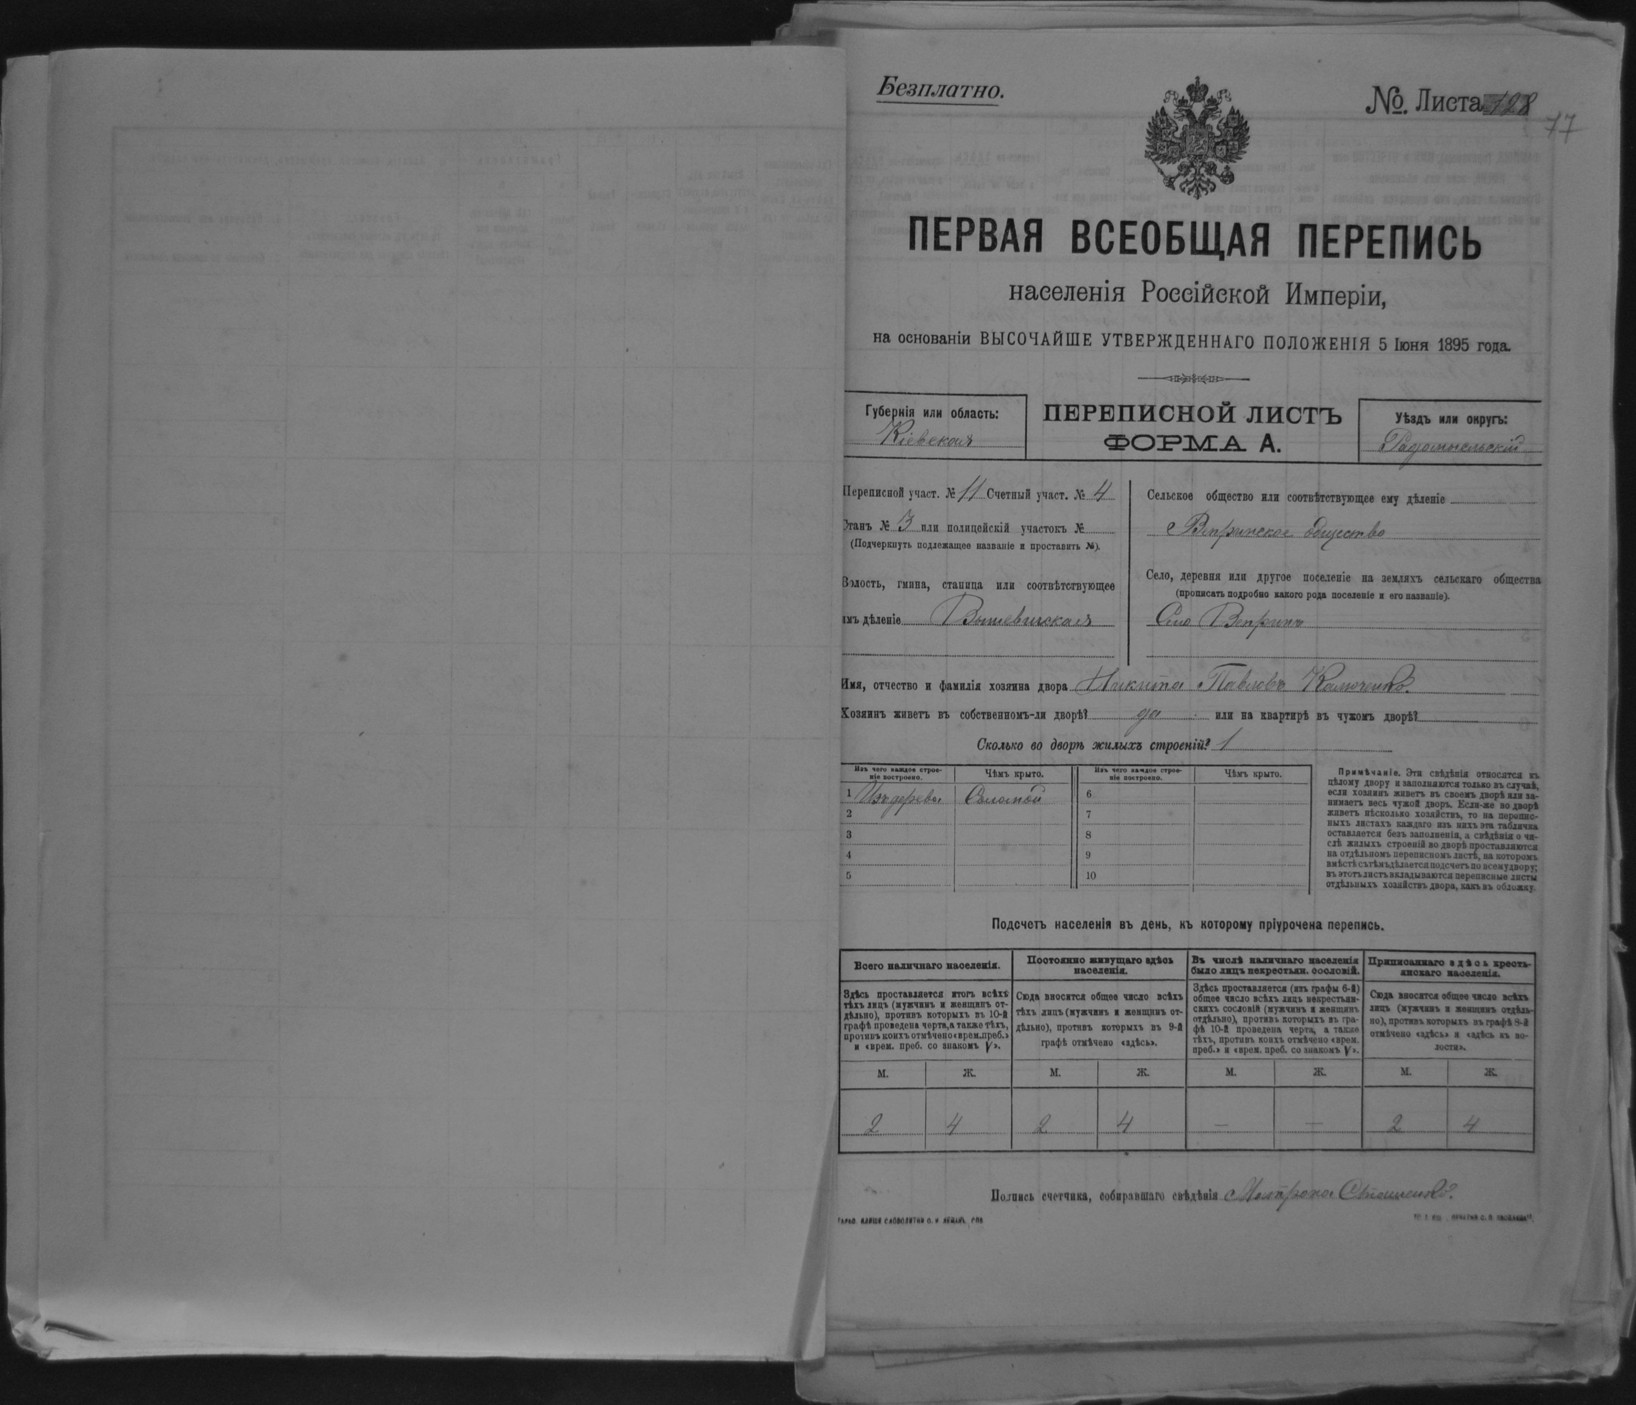 Безплатно.
№. Листа 128
77
ПЕРВАЯ ВСЕОБЩАЯ ПЕРЕПИСЬ
населенія Россійской Имперіи,
на основаніи ВЫСОЧАЙШЕ УТВЕРЖДЕННАГО ПОЛОЖЕНІЯ 5 Іюня 1895 года.
Губернія или область:
Кіевская
ПЕРЕПИСНОЙ ЛИСТЪ
ФОРМА А.
Уѣздъ или округъ:
Радомысльскій
Переписной участ. № 11 Счетный участ. № 4
Станъ № 3 или полицейскій участокъ №
(Подчеркнуть подлежащее названіе и проставить №).
Волость, гмина, станица или соотвѣтствующее
имъ дѣленіе Вышевичская
Сельское общество или соотвѣтствующее ему дѣленіе
Вепринское общество
Село, деревня или другое поселеніе на земляхъ сельскаго общества
(прописать подробно какого рода поселеніе и его названіе).
Село Вепринъ
Имя, отчество и фамилія хозяина двора Никита Павловъ
Хозяинъ живетъ въ собственномъ-ли дворѣ? да или на квартирѣ въ чужомъ дворѣ?
Сколько во дворѣ жилыхъ строеній? 1
Изъ чего каждое строе-
ніе построено.
Чѣмъ крыто.
Изъ чего каждое строе-
ніе построено.
Чѣмъ крыто.
1 Изъ дерева Соломой 6
2 7
3 8
4 9
5 10
Примѣчаніе. Эти свѣдѣнія относятся къ
цѣлому двору и заполняются только въ случаѣ,
если хозяинъ живетъ въ своемъ дворѣ или за-
нимаетъ весь чужой дворъ. Если-же во дворѣ
живетъ нѣсколько хозяйствъ, то на перепис-
ныхъ листахъ каждаго изъ нихъ эта табличка
оставляется безъ заполненія, а свѣдѣнія о чи-
слѣ жилыхъ строеній во дворѣ проставляются
на отдѣльномъ переписномъ листѣ, на которомъ
вмѣстѣ съ тѣмъ дѣлается подсчетъ по всему двору;
въ этотъ листъ вкладываются переписные листы
отдѣльныхъ хозяйствъ двора, какъ въ обложку.
Подсчетъ населенія въ день, къ которому пріурочена перепись.
Всего наличнаго населенія.
Здѣсь проставляется итогъ всѣхъ
тѣхъ лицъ (мужчинъ и женщинъ от-
дѣльно), противъ которыхъ въ 10-й
графѣ проведена черта, а также тѣхъ,
противъ коихъ отмѣчено «врем. преб.»
и «врем. преб. со знакомъ V».
Постоянно живущаго здѣсь
населенія.
Сюда вносится общее число всѣхъ
тѣхъ лицъ (мужчинъ и женщинъ от-
дѣльно), противъ которыхъ въ 9-й
графѣ отмѣчено «здѣсь».
Въ числѣ наличнаго населенія
было лицъ некрестьян. сословій.
Здѣсь проставляется (изъ графы 6-й)
общее число всѣхъ лицъ некрестьян-
скихъ сословій (мужчинъ и женщинъ
отдѣльно), противъ которыхъ въ гра-
фѣ 10-й проведена черта, а также
тѣхъ, противъ коихъ отмѣчено «врем.
преб.» и «врем. преб. со знакомъ V».
Приписаннаго здѣсь кресть-
янскаго населенія.
Сюда вносится общее число всѣхъ
лицъ (мужчинъ и женщинъ отдѣль-
но), противъ которыхъ въ графѣ 8-й
отмѣчено «здѣсь» и «здѣсь въ во-
лости».
М. Ж. М. Ж. М. Ж. М. Ж.
2 4 2 4 — — 2 4
Подпись счетчика, собиравшаго свѣдѣнія